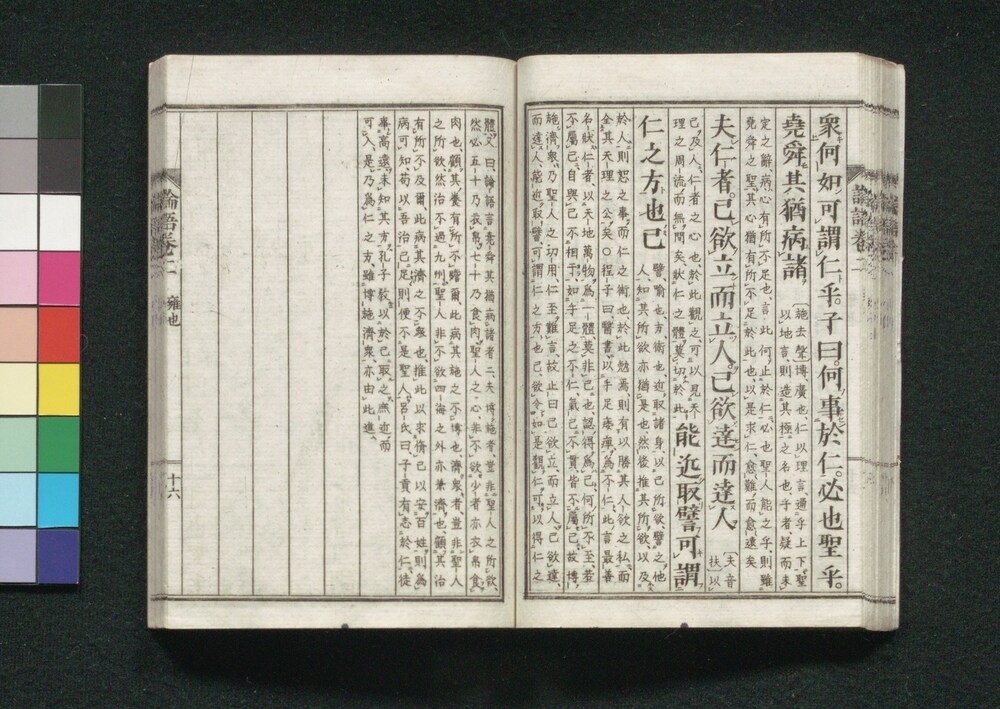 衆何如可謂仁乎。子曰何事於仁。必也聖乎。
堯舜其猶病諸
施去聲博廣也仁以理言通乎上下聖
以地言則造其極之名也乎者疑而未
定之辭病心有所不足也言此何止於仁必也聖人能之乎則雖
堯舜之聖其心猶有所不足於此也以是求仁愈難而愈遠矣
夫仁者。己欲立而立人。己欲達而達人。
夫音
扶以
己及人仁者之心也於此觀之可以見天
理之周流而無間矣狀仁之體莫切於此
能近取譬可謂
仁之方也已
譬喩也方術也近取諸身以己所欲譬之他
人知其所欲亦猶是也然後推其所欲以及
於人則恕之事而仁之術也於此勉焉則有以勝其人欲之私而
全其天理之公矣○程子曰醫書以手足痿痺爲不仁此言最善
名狀仁者以天地萬物爲一體莫非己也認得爲己何所不至若
不屬己自與己不相干如手足之不仁氣已不貫皆不屬己故博
施濟衆乃聖人之功用仁至難言故止曰己欲立而立人己欲達
而達人能近取譬可謂仁之方也已欲令如是觀仁可以得仁之
體又曰論語言堯舜其猶病諸者二夫博施者豈非聖人之所欲
然必五十乃衣帛七十乃食肉聖人之心非不欲少者亦衣帛食
肉也顧其養有所不贍爾此病其施之不博也濟衆者豈非聖人
之所欲然治不過九州聖人非不欲四海之外亦兼濟也顧其治
有所不及爾此病其濟之不衆也推此以求脩己以安百姓則爲
病可知苟以吾治已足則便不是聖人呂氏曰子貢有志於仁徒
事高遠未知其方孔子敎以於己取之庶近而
可入是乃爲仁之方雖博施濟衆亦由此進
論語卷二 雍也 十六